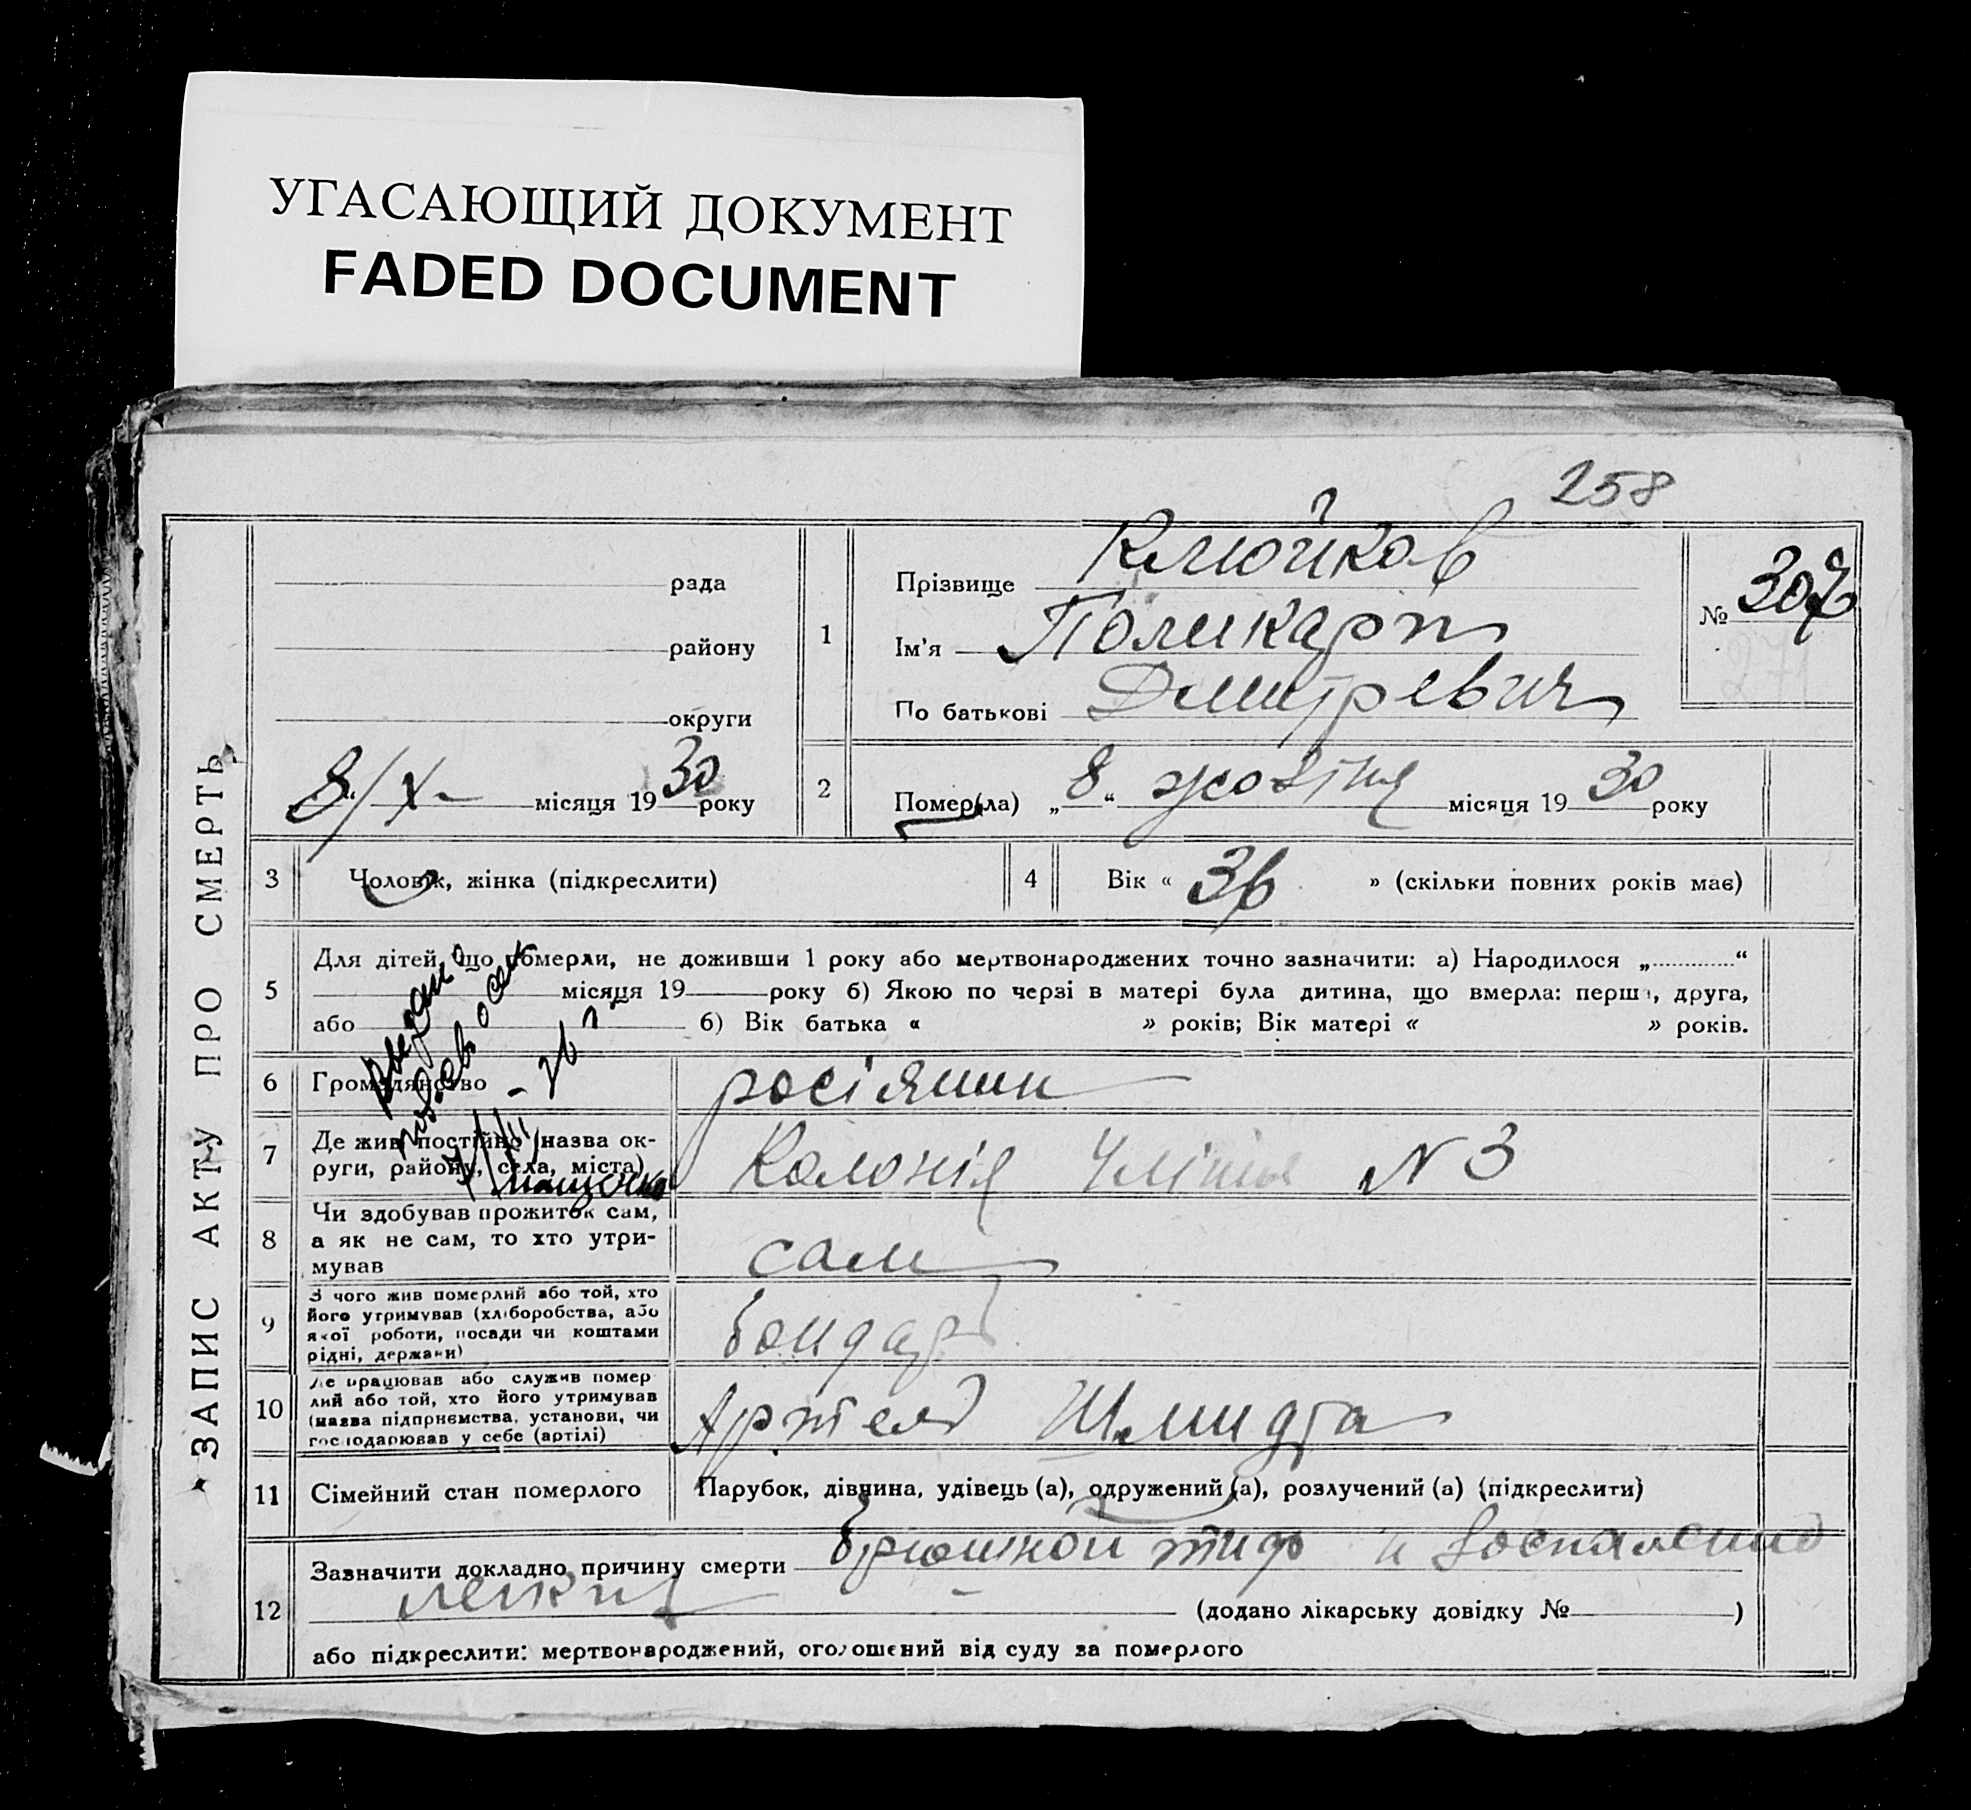 УГАСАЮЩИЙ ДОКУМЕНТ
FADED DOCUMENT
258
ЗАПИС АКТУ ПРО СМЕРТЬ
рада
району
округи
8/X- місяця 1930 року
1
Прізвище Клюйков
Ім'я Поликарп
По батькові Дмитревич
№ 307
271
2
Помер(ла) „8“ жовтня місяця 1930 року
3
Чоловік, жінка (підкреслити)
4
Вік « 36 » (скільки повних років має)
5
Для дітей, що померли, не доживши 1 року або мертвонароджених точно зазначити: а) Народилося „ “
місяця 19 року б) Якою по черзі в матері була дитина, що вмерла: перша, друга,
або б) Вік батька « » років; Вік матері « » років.
6
Громадянство
росіянин
7
Де жив постійно (назва ок-
руги, району, села, міста)
Колонія № 3
8
Чи здобував прожиток сам,
а як не сам, то хто утри-
мував
сам
9
З чого жив померлий або той, хто
його утримував (хліборобства, або
якої роботи, посади чи коштами
рідні, держави)
бондарь
10
Де працював або служив помер
лий або той, хто його утримував
(назва підприємства, установи, чи
господарював у себе (артілі)
Артель Шмидта
11
Сімейний стан померлого
Парубок, дівчина, удівець (а), одружений (а), розлучений (а) (підкреслити)
12
Зазначити докладно причину смерти брюшной тиф и воспаление
легких
(додано лікарську довідку № )
або підкреслити: мертвонароджений, оголошений від суду за померлого